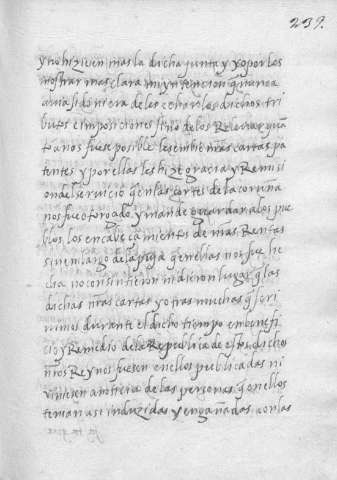 239.
y no hiziesen mas la dicha junta y yo por les
mostrar mas clara my yntencion q̃ nunca
avia sido ni era de les echar los dichos tri
butos e ynposiciones sino de los Relevar quã
to a nos fuese posible les embie mis cartas pa
tentes y por ellas les hize gracia y Remisi
on del servicio q̃ en las cortes de la coruña
nos fue otorgado y mande guardar a los pue
blos los encabeçamientos de nr̃as Rentas
sin embargo de la puja q̃ en ellas nos fue he
cha no consintieron ni dieron lugar q̃ las
dichas nr̃as cartas y otras muchas q̃ scri
vimos durante el dicho tiempo en benefi
sio y Remedio de la Republica destos dichos
nr̃os Reynos fuesen en ellos publicadas ni
viniesen a noticia de las personas q̃ en ellos
tenian asi induzidas y engañadas con las